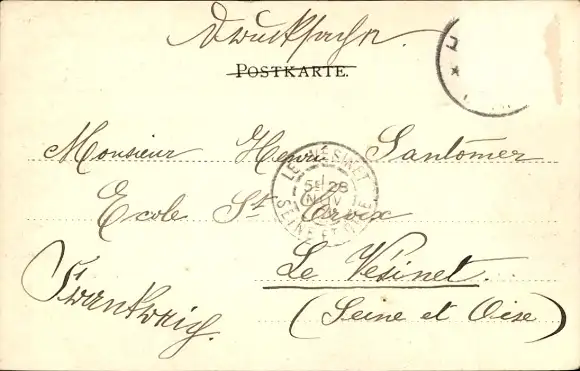 Drucksache.
POSTKARTE.
Monsieur Henri Santomer
Ecole St Croix
Le Vésinet.
(Seine et Oise)
Frankreich.
LE VÉSINET
5E 28
NOV
SEINE ET OISE